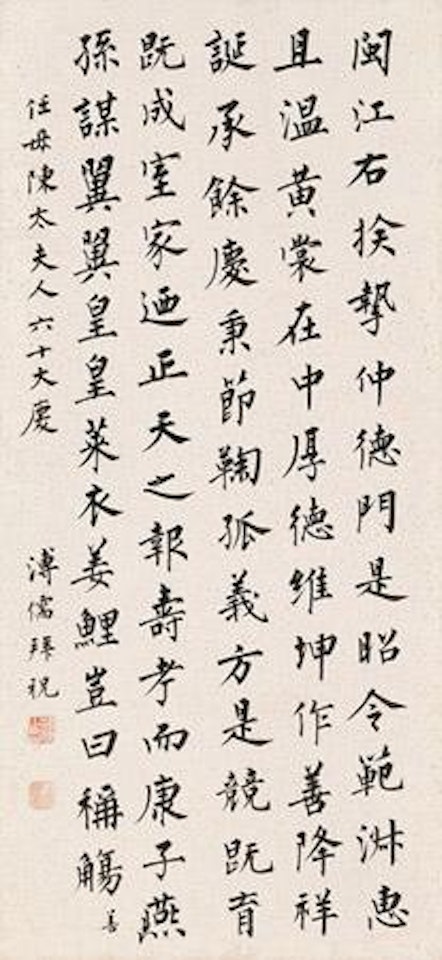 閩江右族摯仲德門是昭令範淑惠
且溫黃裳在中厚德維坤作善降祥
誕承餘慶秉節鞠孤義方是競既育
既成室家迺正天之報壽考而康子燕
孫謀翼翼皇皇萊衣姜鯉豈曰稱觴 善
任母陳太夫人六十大慶 溥儒拜祝